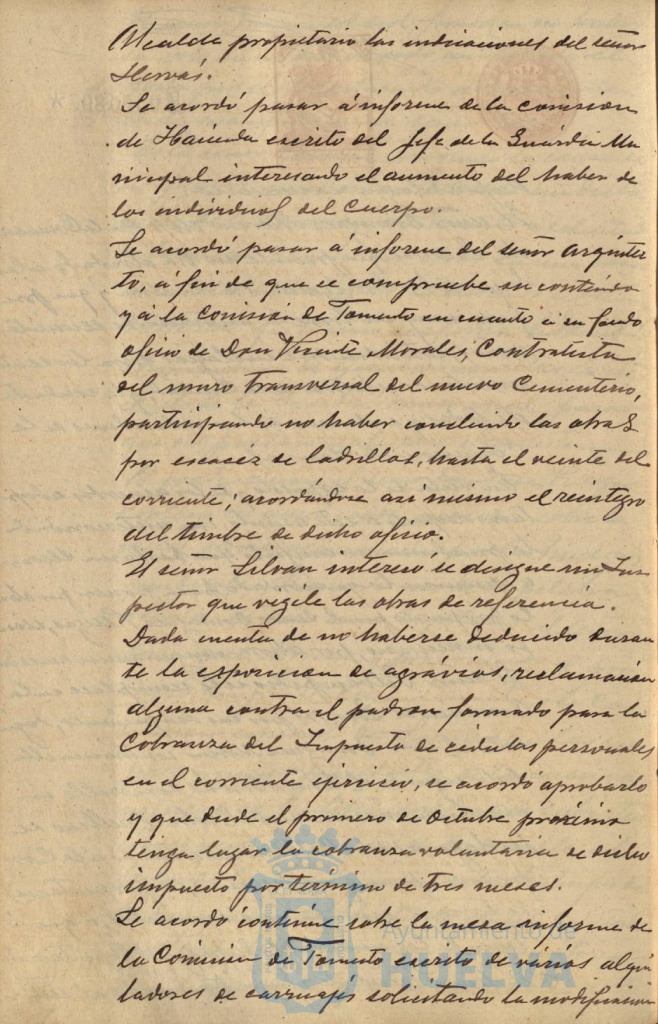 Alcalde propietario las indicaciones del señor
Hervás.
Se acordó pasar á informe de la comision
de Hacienda escrito del Jefe de la Guardia Mu
nicipal interesando el aumento del haber de
los individuos del Cuerpo.
Se acordó pasar á informe del señor Arquitec
to, á fin de que se compruebe su contenido
y á la Comisión de Fomento en cuanto á su fondo
oficio de Don Vicente Morales, Contratista
del muro transversal del nuevo Cementerio,
participando no haber concluido las obras
por escacéz de ladrillos, hasta el veinte del
corriente; acordándose asi mismo el reintegro
del timbre de dicho oficio.
El señor Silvan interesó se designe un Ins
pector que vigile las obras de referencia.
Dada cuenta de no haberse deducido duran
te la esposicion de agrávios, reclamación
alguna contra el padron formado para la
Cobranza del Impuesto de cédulas personales
en el corriente ejercicio, se acordó aprobarlo
y que desde el primero de Octubre próximo
tenga lugar la cobranza voluntaria de dicho
impuesto por término de tres meses.
Se acordó continúe sobre la mesa informe de
la Comision de Fomento escrito de varios alqui
ladores de carruajes solicitando la modificacion
Ayuntamiento de
HUELVA